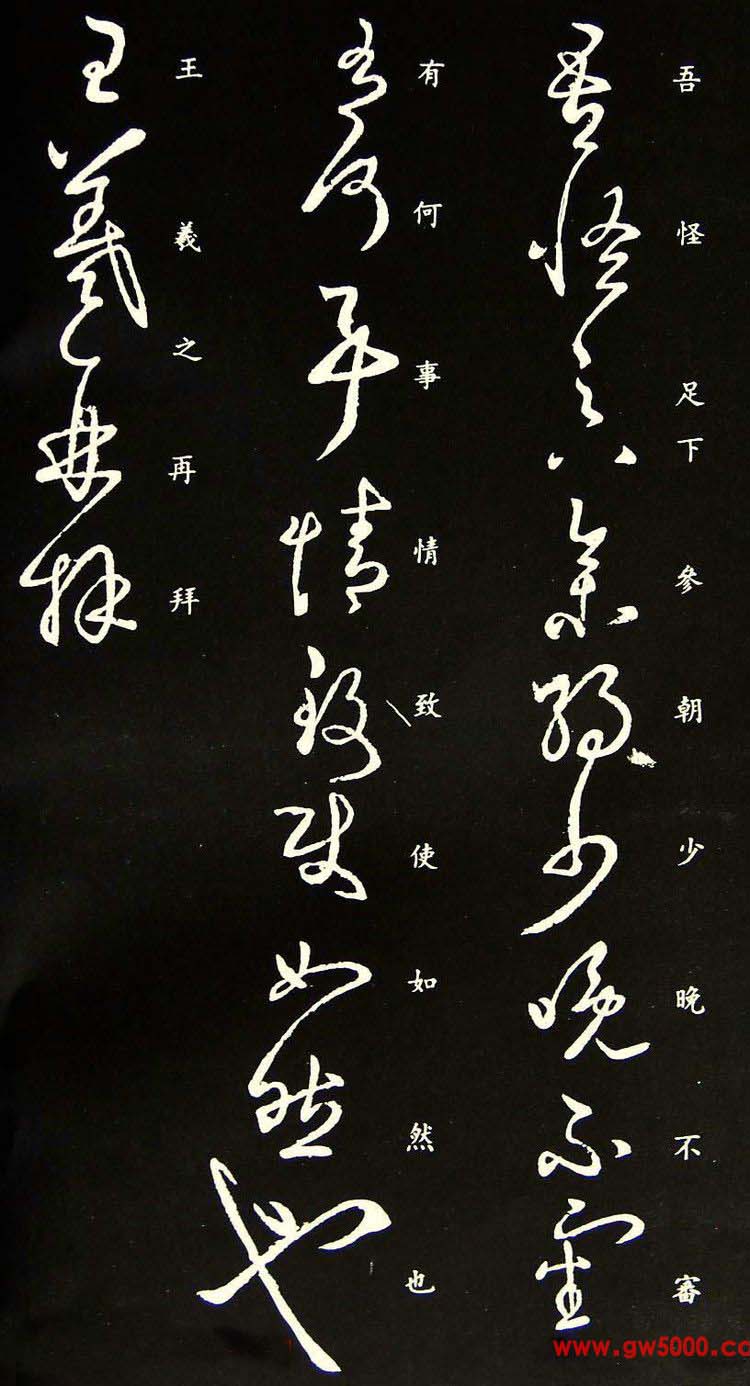 吾怪足下參朝少晚不審
有何事情致使如然也
王羲之再拜
www.gw5000.cc